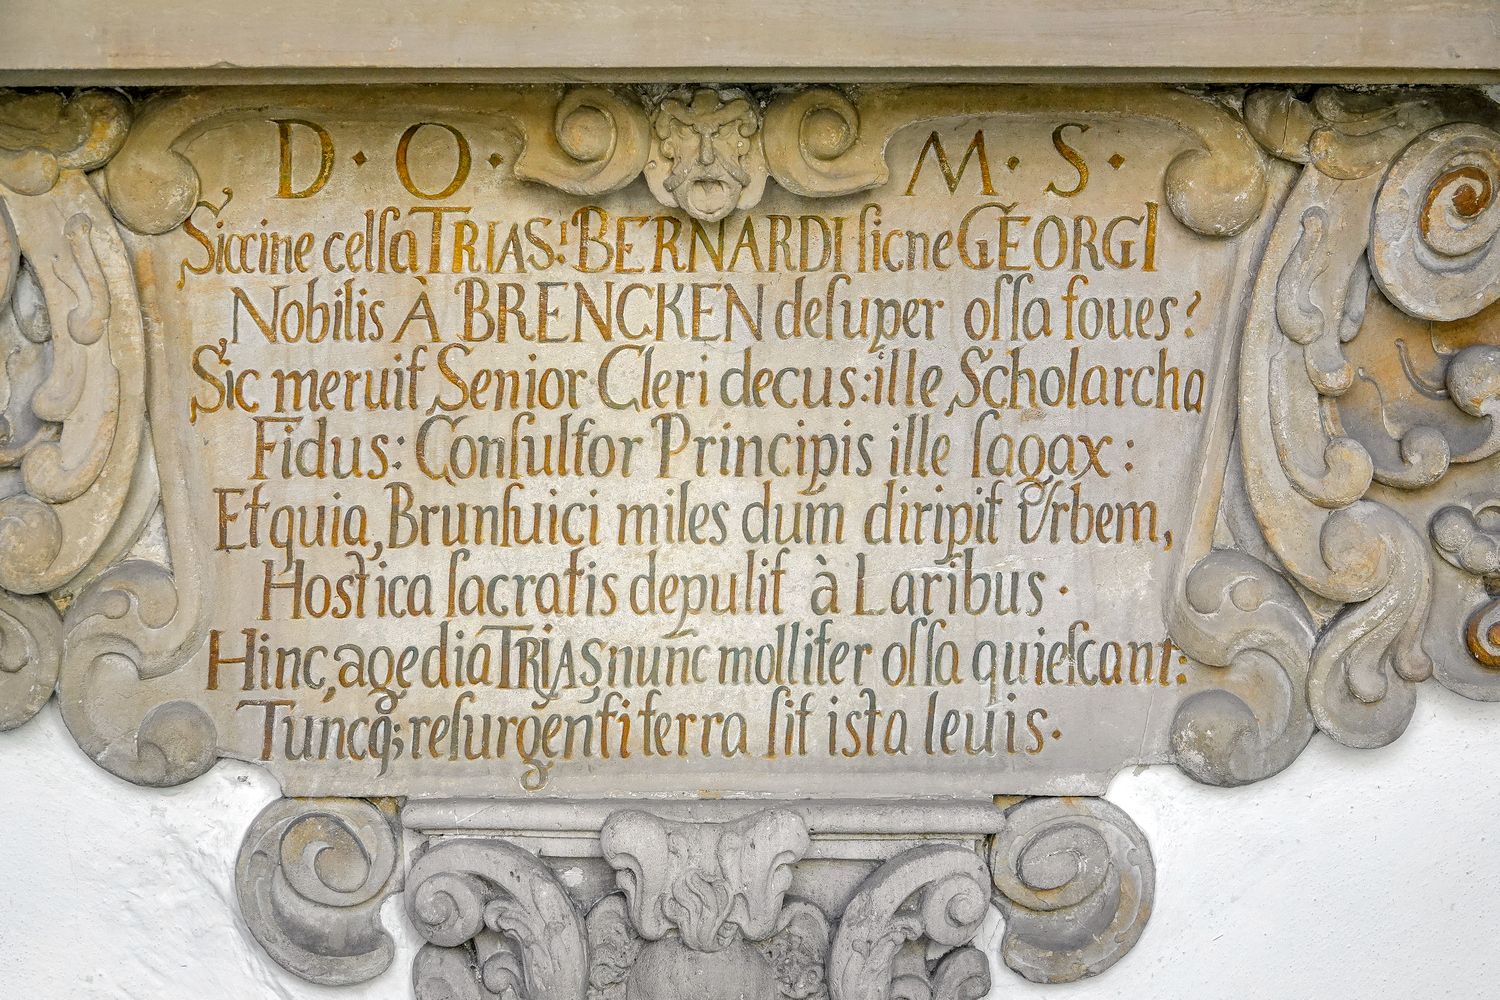 D·O· M·S·
Siccine celſa TRIAS! BERNARDI ſicne GEORGI
Nobilis À BRENCKEN deſuper oſſa foues?
Sic meruit Senior Cleri decus: ille Scholarcha
Fidus: Conſultor Principis ille ſagax:
Et quia, Brunſuici miles dum diripit Vrbem,
Hostica ſacratis depulit à Laribus·
Hinc, age dia TRIAS nunc molliter oſſa quieſcant:
Tuncq; reſurgenti terra ſit ista leuis·